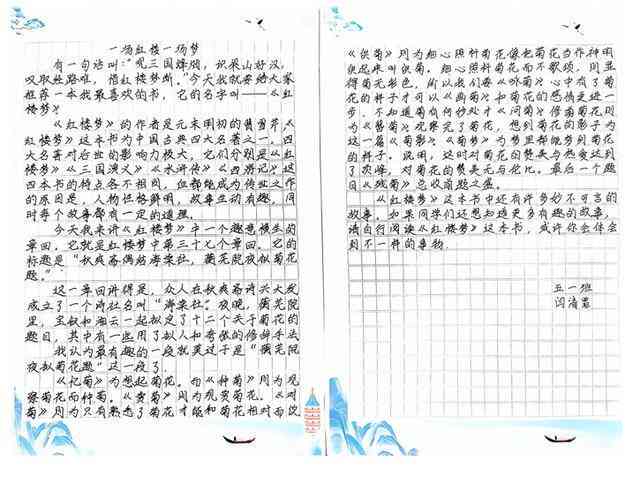 一场红楼一场梦
有一句话叫:"叹三国烽烟,识梁山好汉,
叹取经路难,惜红楼梦断。"今天我就要给大家
推荐一本我最喜欢的书,它的名字叫——《红
楼梦》
《红楼梦》的作者是元末明初的曹雪芹,《
红楼梦》这本书为中国古典四大名著之一。四
大名著对后世的影响力极大,它们分别是《红
楼梦》《三国演义》《水浒传》《西游记》这
四本书的特点各不相同,但都能成为传世之作
的原因是,人物性格鲜明,故事生动有趣,同
时每个故事都有一定的道理。
今天我来讲《红楼梦》中一个趣意横生的
章回。它就是红楼梦中第三十七个章回。它的
标题是"秋爽斋偶结海棠社,蘅芜院夜拟菊花
题。"
这一章回讲得是,众人在秋爽斋诗兴大发
成立了一个诗社名叫"海棠社"夜晚,蘅芜院
里,宝钗和湘云一起拟定了十二个关于菊花的
题目,其中有一些用了拟人和夸张的修辞手法
我认为最有趣的一段就莫过于是"蘅芜院
夜拟菊花题"这一段了。
《忆菊》为想起菊花。而《种菊》则为观
察菊花而种菊。《赏菊》则为观赏菊花。《对
菊》则为只有熟悉了菊花才能和菊花相对而说
《供菊》则为细心照料菊花像把菊花当作神明
供起来叫供菊。细心照料菊花而不歌颂,则显
得菊无彩色,所以我们要《咏菊》心中有了菊
花的样子才可以《画菊》和菊花的感情更进一
步,不知道菊向何处时才《问菊》修剪菊花则
为《簪菊》观察完了菊花,想到菊花的影子为
这一篇《菊影》。《菊梦》为梦里都能梦到菊花
的样子。说明,这时对菊花的赞美与热爱达到
了顶峰,对菊花的赞美无与伦比。最后一个题
目《残菊》总收前题之盛。
《红楼梦》这本书中还有许多妙不可言的
故事,如果同学们还想知道更多有趣的故事,
请自行阅读《红楼梦》这本书,或许你会体会
到不一样的事物。
五一班